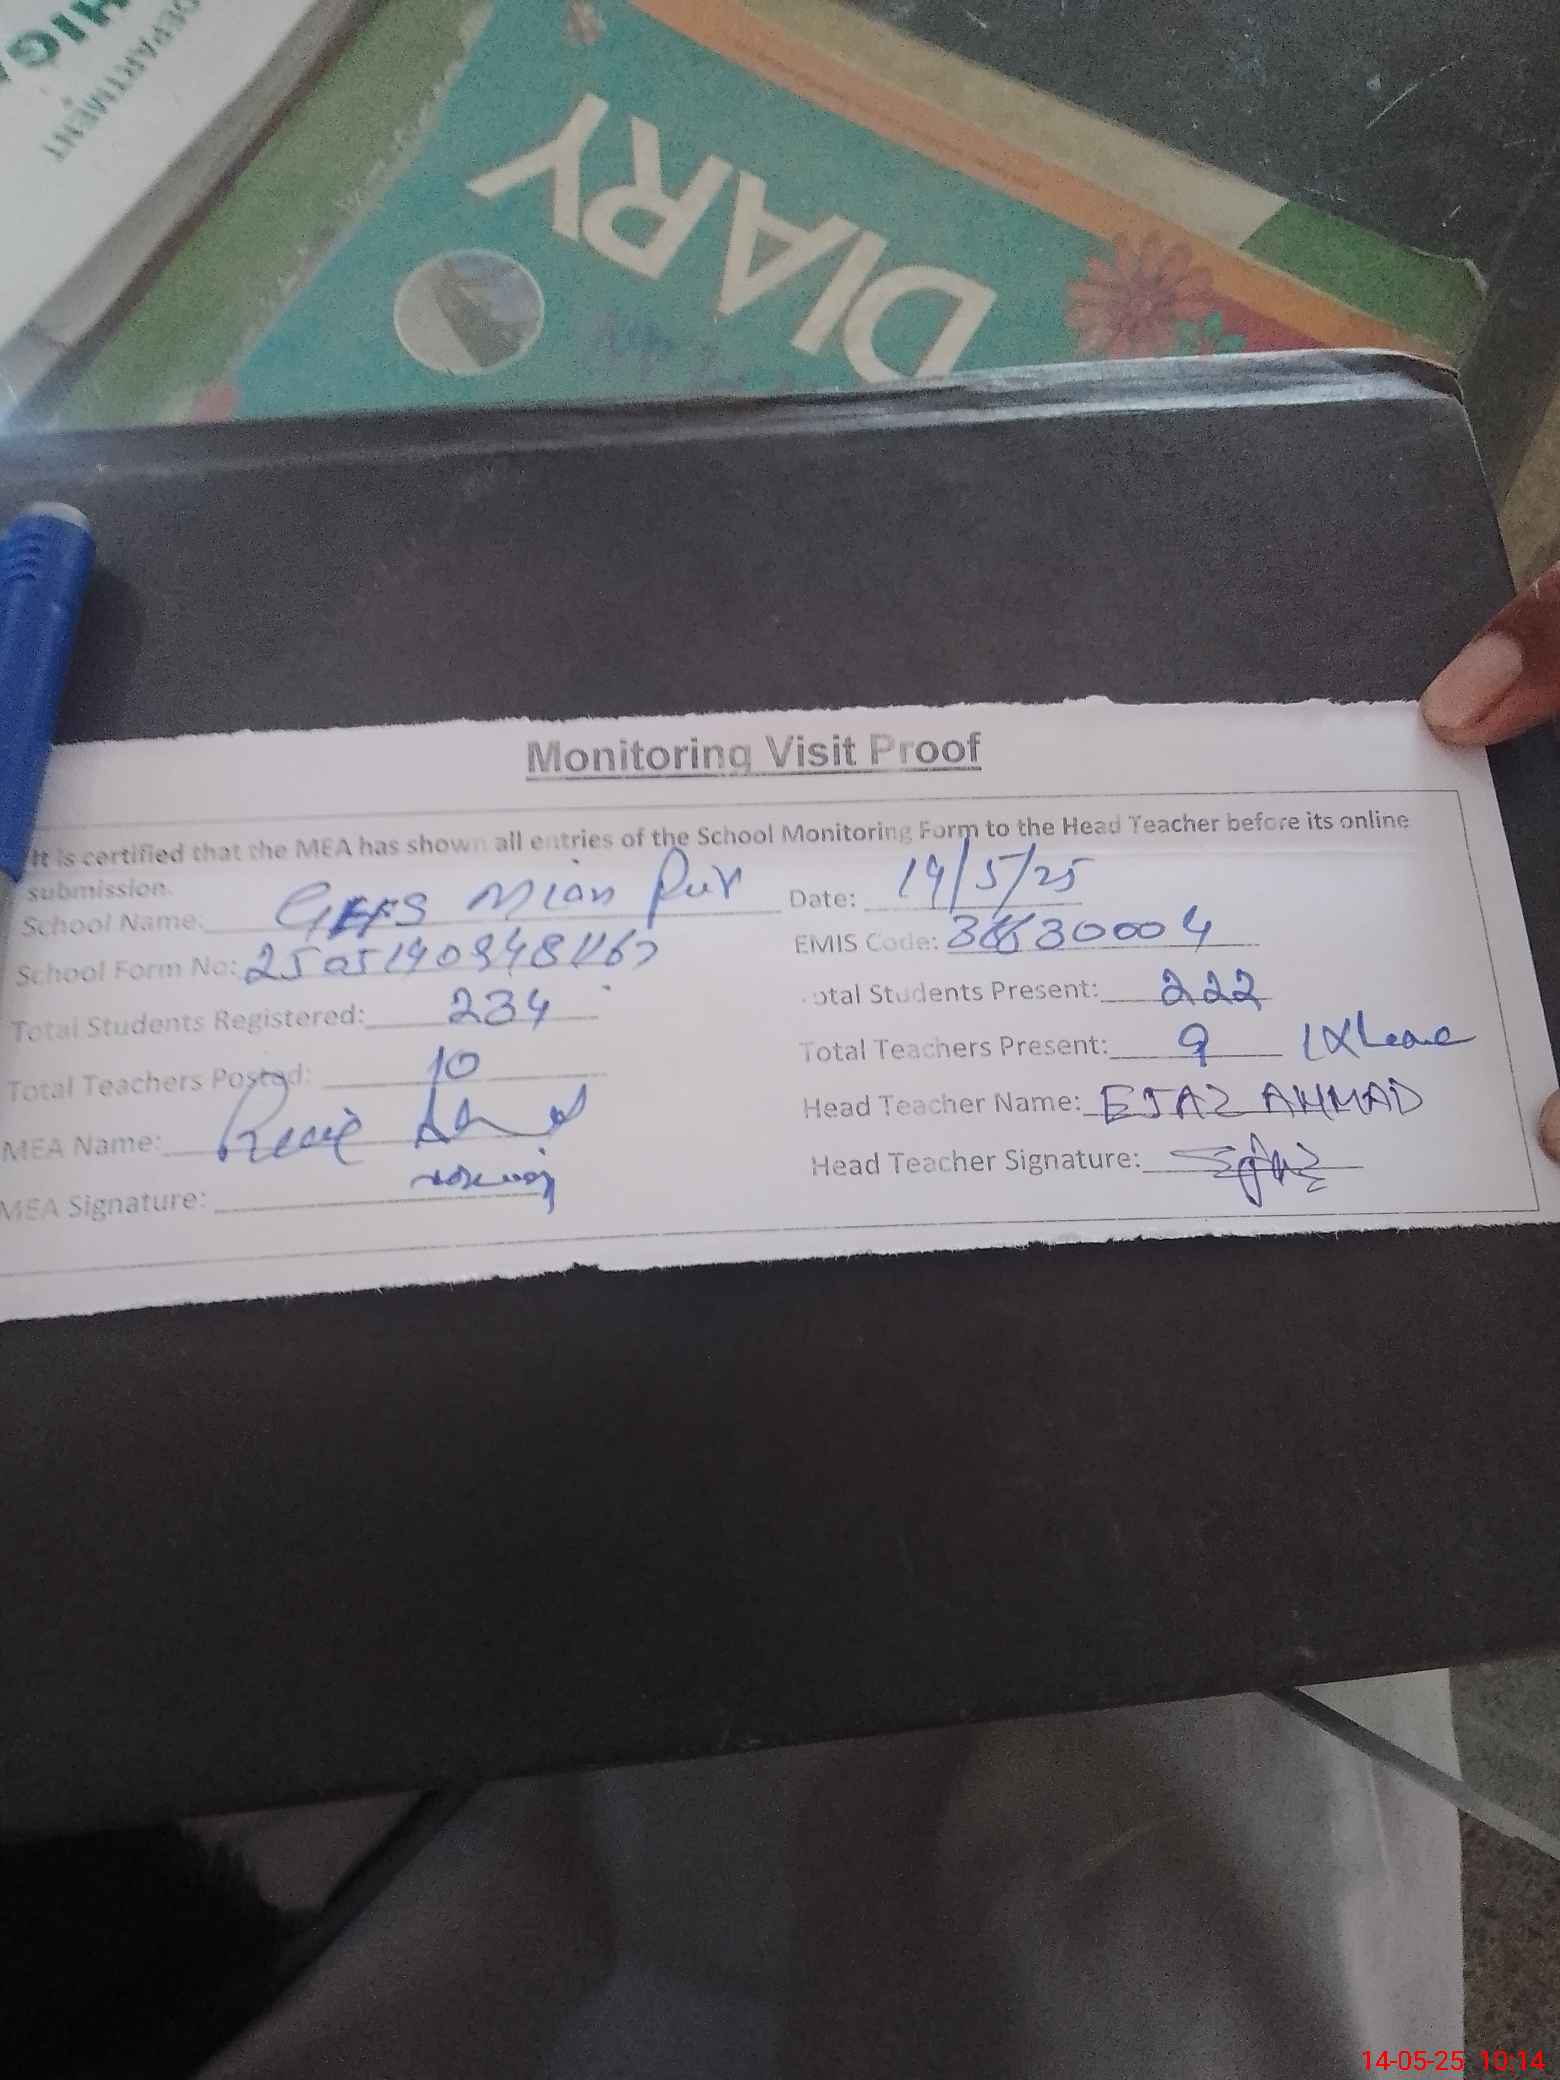 DEPARTMENT
DIARY
Monitoring Visit Proof
It is certified that the MEA has shown all entries of the School Monitoring Form to the Head Teacher before its online
submission.
School Name: Mian Pur Date: 14/5/25
School Form No: EMIS Code:
Total Students Registered: 234 Total Students Present: 222
Total Teachers Posted: 10 Total Teachers Present: 9 1XLeave
MEA Name: Head Teacher Name: EJAZ AHMAD
MEA Signature: Head Teacher Signature:
14-05-25 10:14